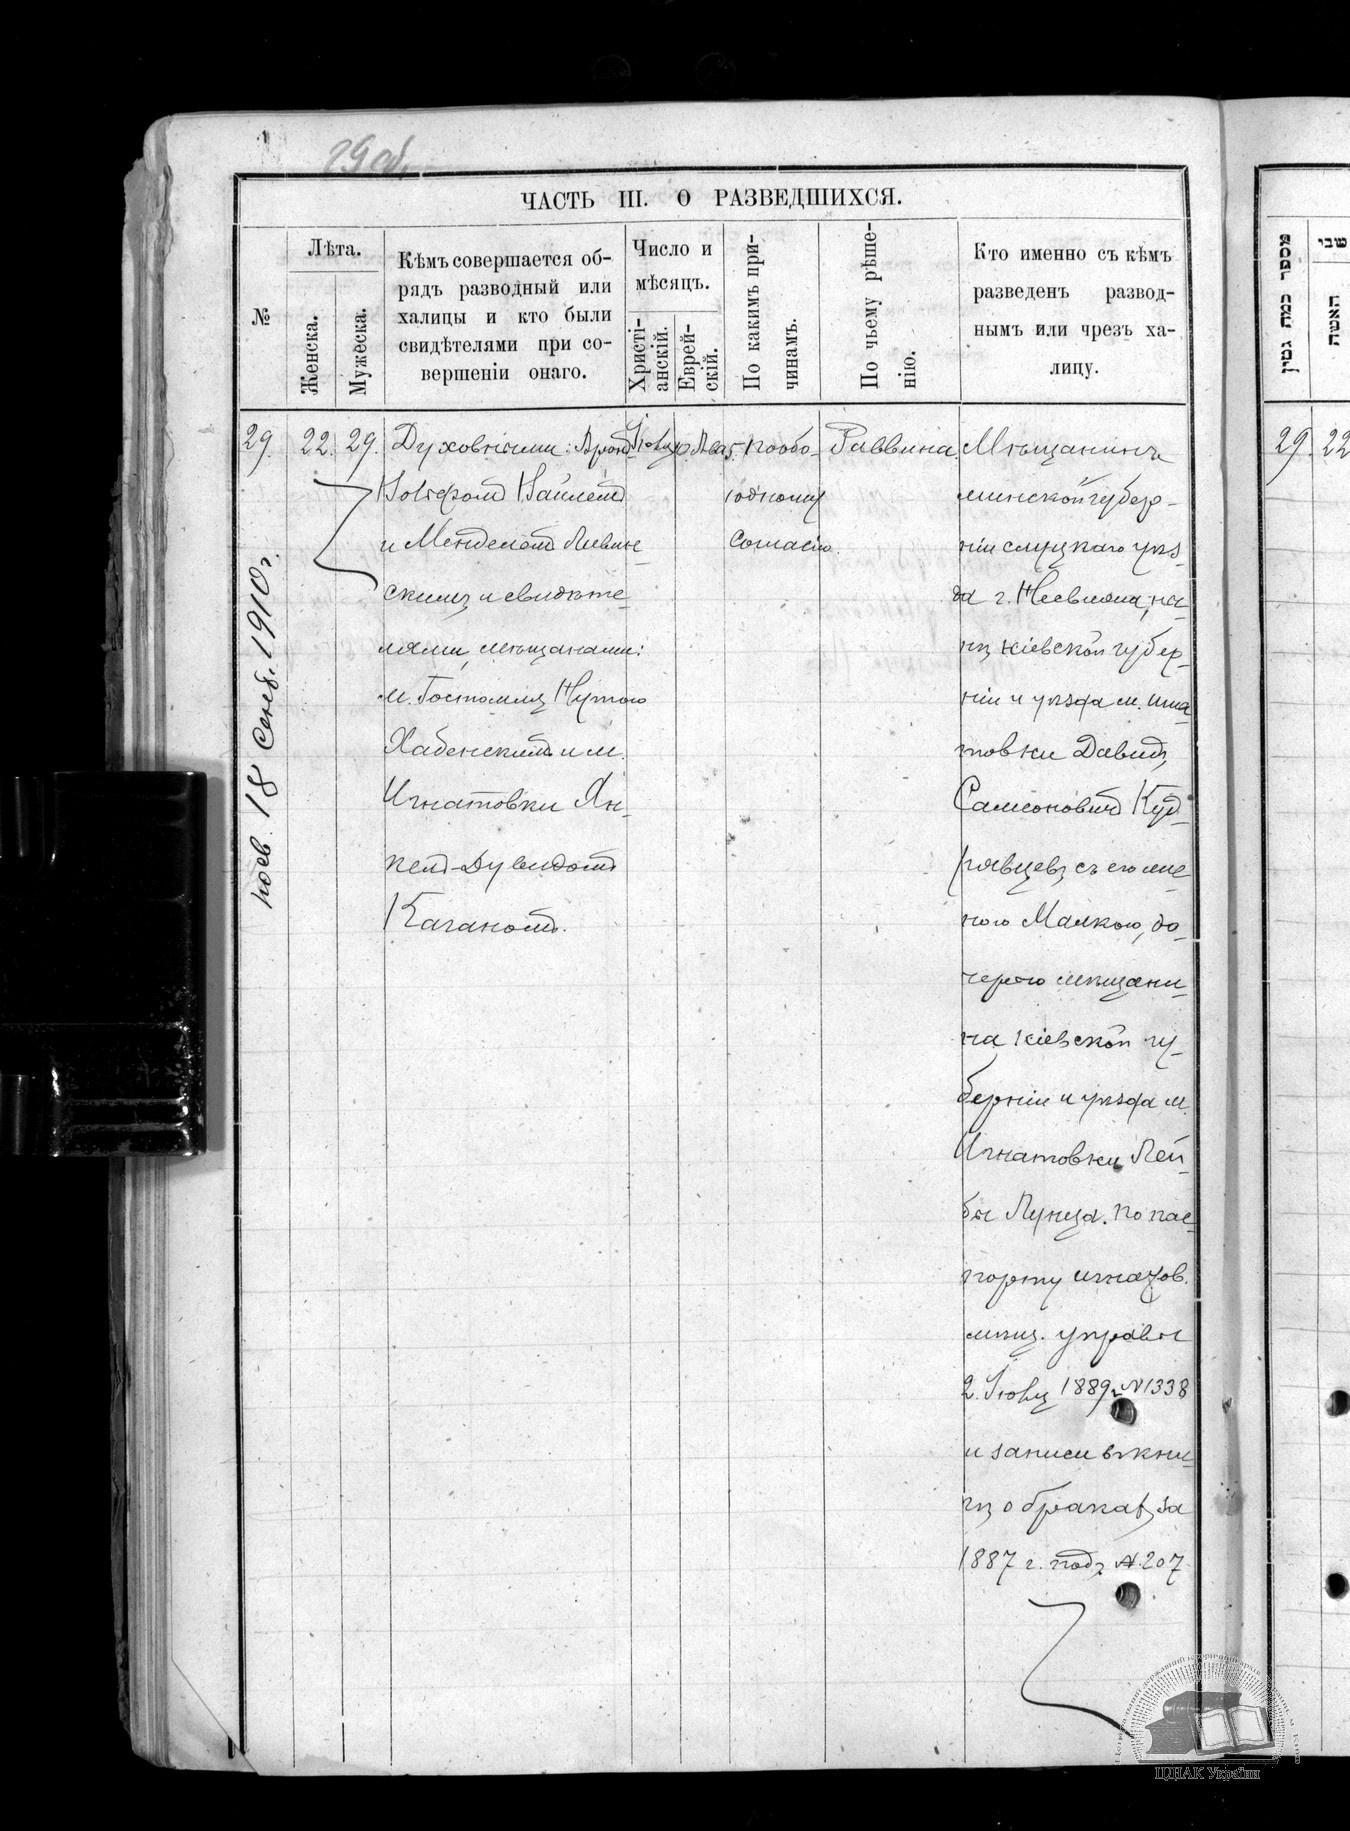 29 об.
ЧАСТЬ III. О РАЗВЕДШИХСЯ.
№
Лѣта.
Женска.
Мужеска.
Кѣмъ совершается об-
рядъ разводный или
халицы и кто были
свидѣтелями при со-
вершеніи онаго.
Число и
мѣсяцъ.
Христі-
анскій.
Еврей-
скій.
По какимъ при-
чинамъ.
По чьему рѣше-
нію.
Кто именно съ кѣмъ
разведенъ развод-
нымъ или чрезъ ха-
лицу.
29. 22. 29.
Духовными: Арон
и Менделемъ Левин-
скимъ и свидѣте-
лями, мѣщанами:
м. Гостомля Нутою
Хабенскимъ и м.
Игнатовки Ян-
келъ-Дувидомъ
Каганомъ.
по обо-
юдному
согласію.
Раввина.
Мѣщанинъ
минской губер-
ніи слуцкаго уѣз-
да г. Несвижа,
кіевской губер-
ніи и уѣзда м. Игна
товки Давид
Самсонович Куд-
рявцевъ съ его же
ною Малкою, до-
черью мѣщани-
на Кіевской гу-
берніи и уѣзда м.
Игнатовки Лей-
бы Лунца. По пас-
порту игнатов.
мѣщ. управы
2. 1889 г. № 1338
и записи въ кни-
гѣ о бракахъ за
1887 г. подъ № 207
18 Сент. 1910 г.
מספר כמה גטין
שני
האשה
29. 22
ЦДІАК України